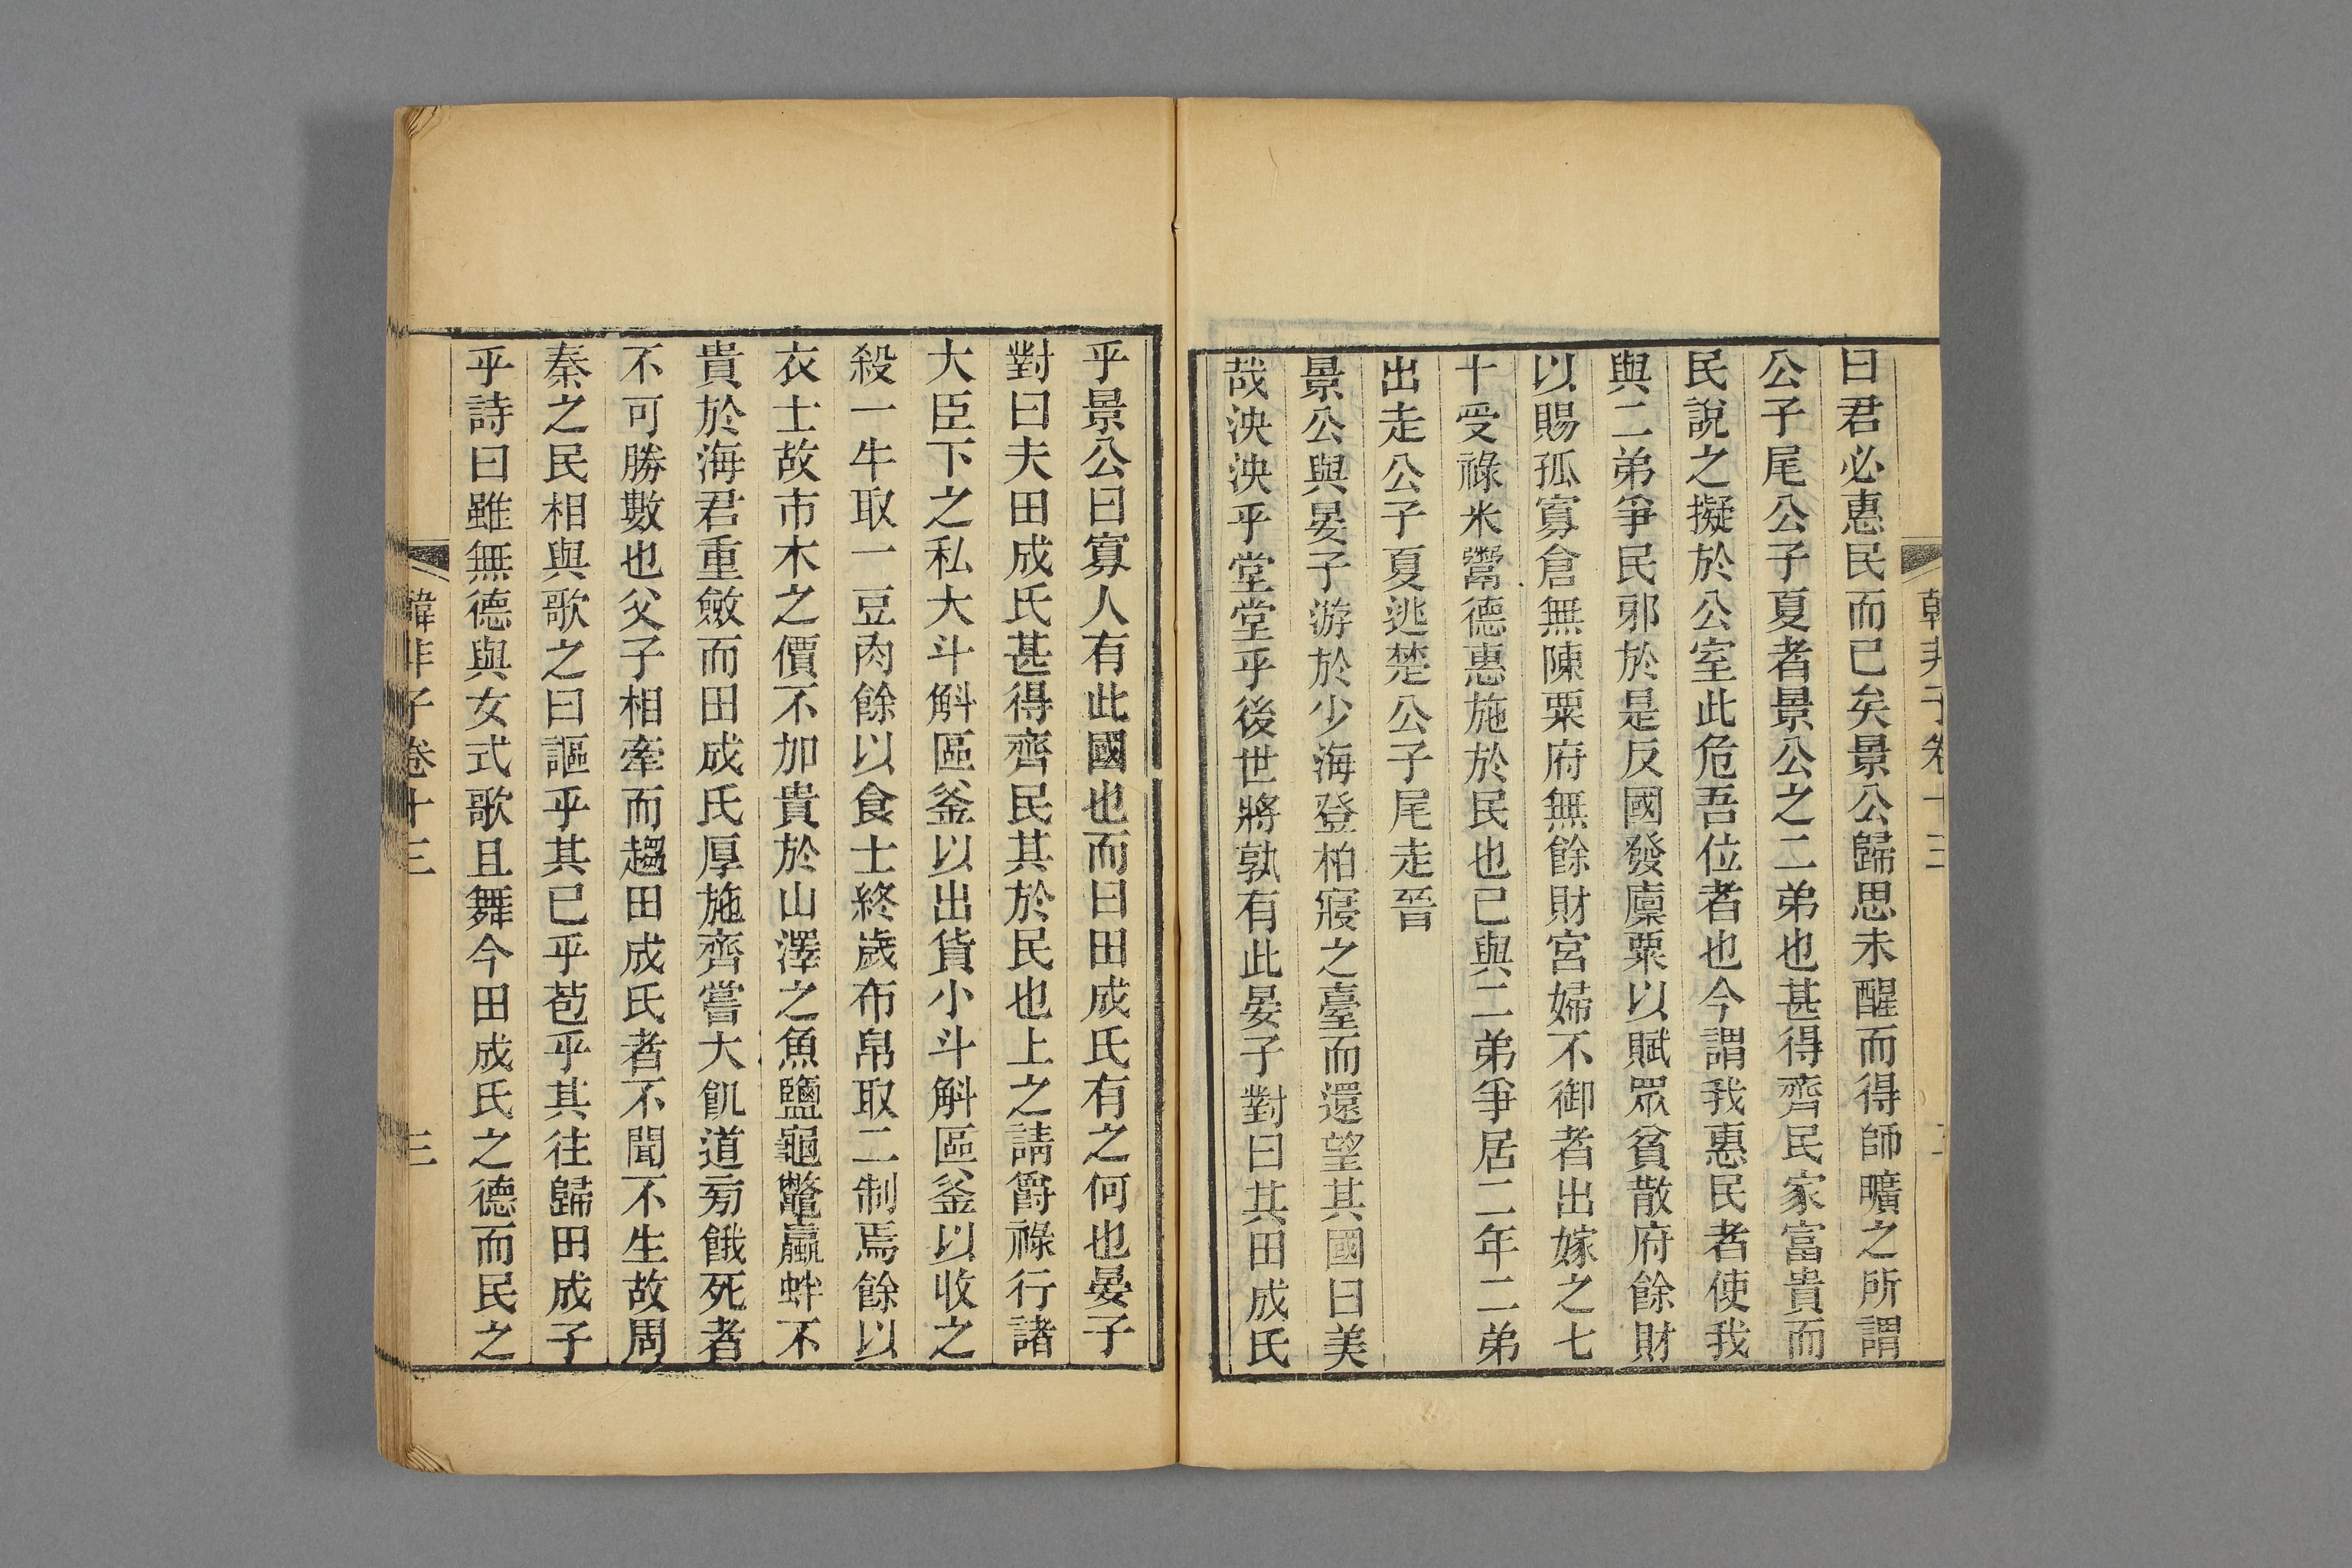 韓非子卷十三
曰君必惠民而已矣景公歸思未醒而得師曠之所謂
公子尾公子夏者景公之二弟也甚得齊民家富貴而
民說之擬於公室此危吾位者也今謂我惠民者使我
與二弟爭民邪於是反國發廩粟以賦眾貧散府餘財
以賜孤寡倉無陳粟府無餘財宮婦不御者出嫁之七
十受祿米鬻德惠施於民也已與二弟爭居二年二弟
出走公子夏逃楚公子尾走晉
景公與晏子游於少海登柏寢之臺而還望其國曰美
哉泱泱乎堂堂乎後世將孰有此晏子對曰其田成氏
乎景公曰寡人有此國也而曰田成氏有之何也晏子
對曰夫田成氏甚得齊民其於民也上之請爵祿行諸
大臣下之私大斗斛區釜以出貨小斗斛區釜以收之
殺一牛取一豆肉餘以食士終歲布帛取二制焉餘以
衣士故市木之價不加貴於山澤之魚鹽龜鼈蠃蚌不
貴於海君重斂而田成氏厚施齊嘗大飢道旁餓死者
不可勝數也父子相牽而趨田成氏者不聞不生故周
秦之民相與歌之曰謳乎其已乎苞乎其往歸田成子
乎詩曰雖無德與女式歌且舞今田成氏之德而民之
韓非子卷十三
三